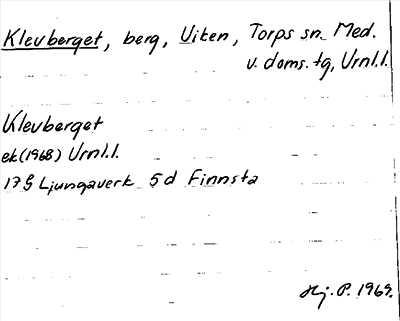 Klevberget, berg, Viken, Torps sn. Med.
v. doms. tg, Urnl.l.
Klevberget
ek (1968) Urnl.l.
17G Ljungaverk 5d Finnsta
Hj. P. 1969.